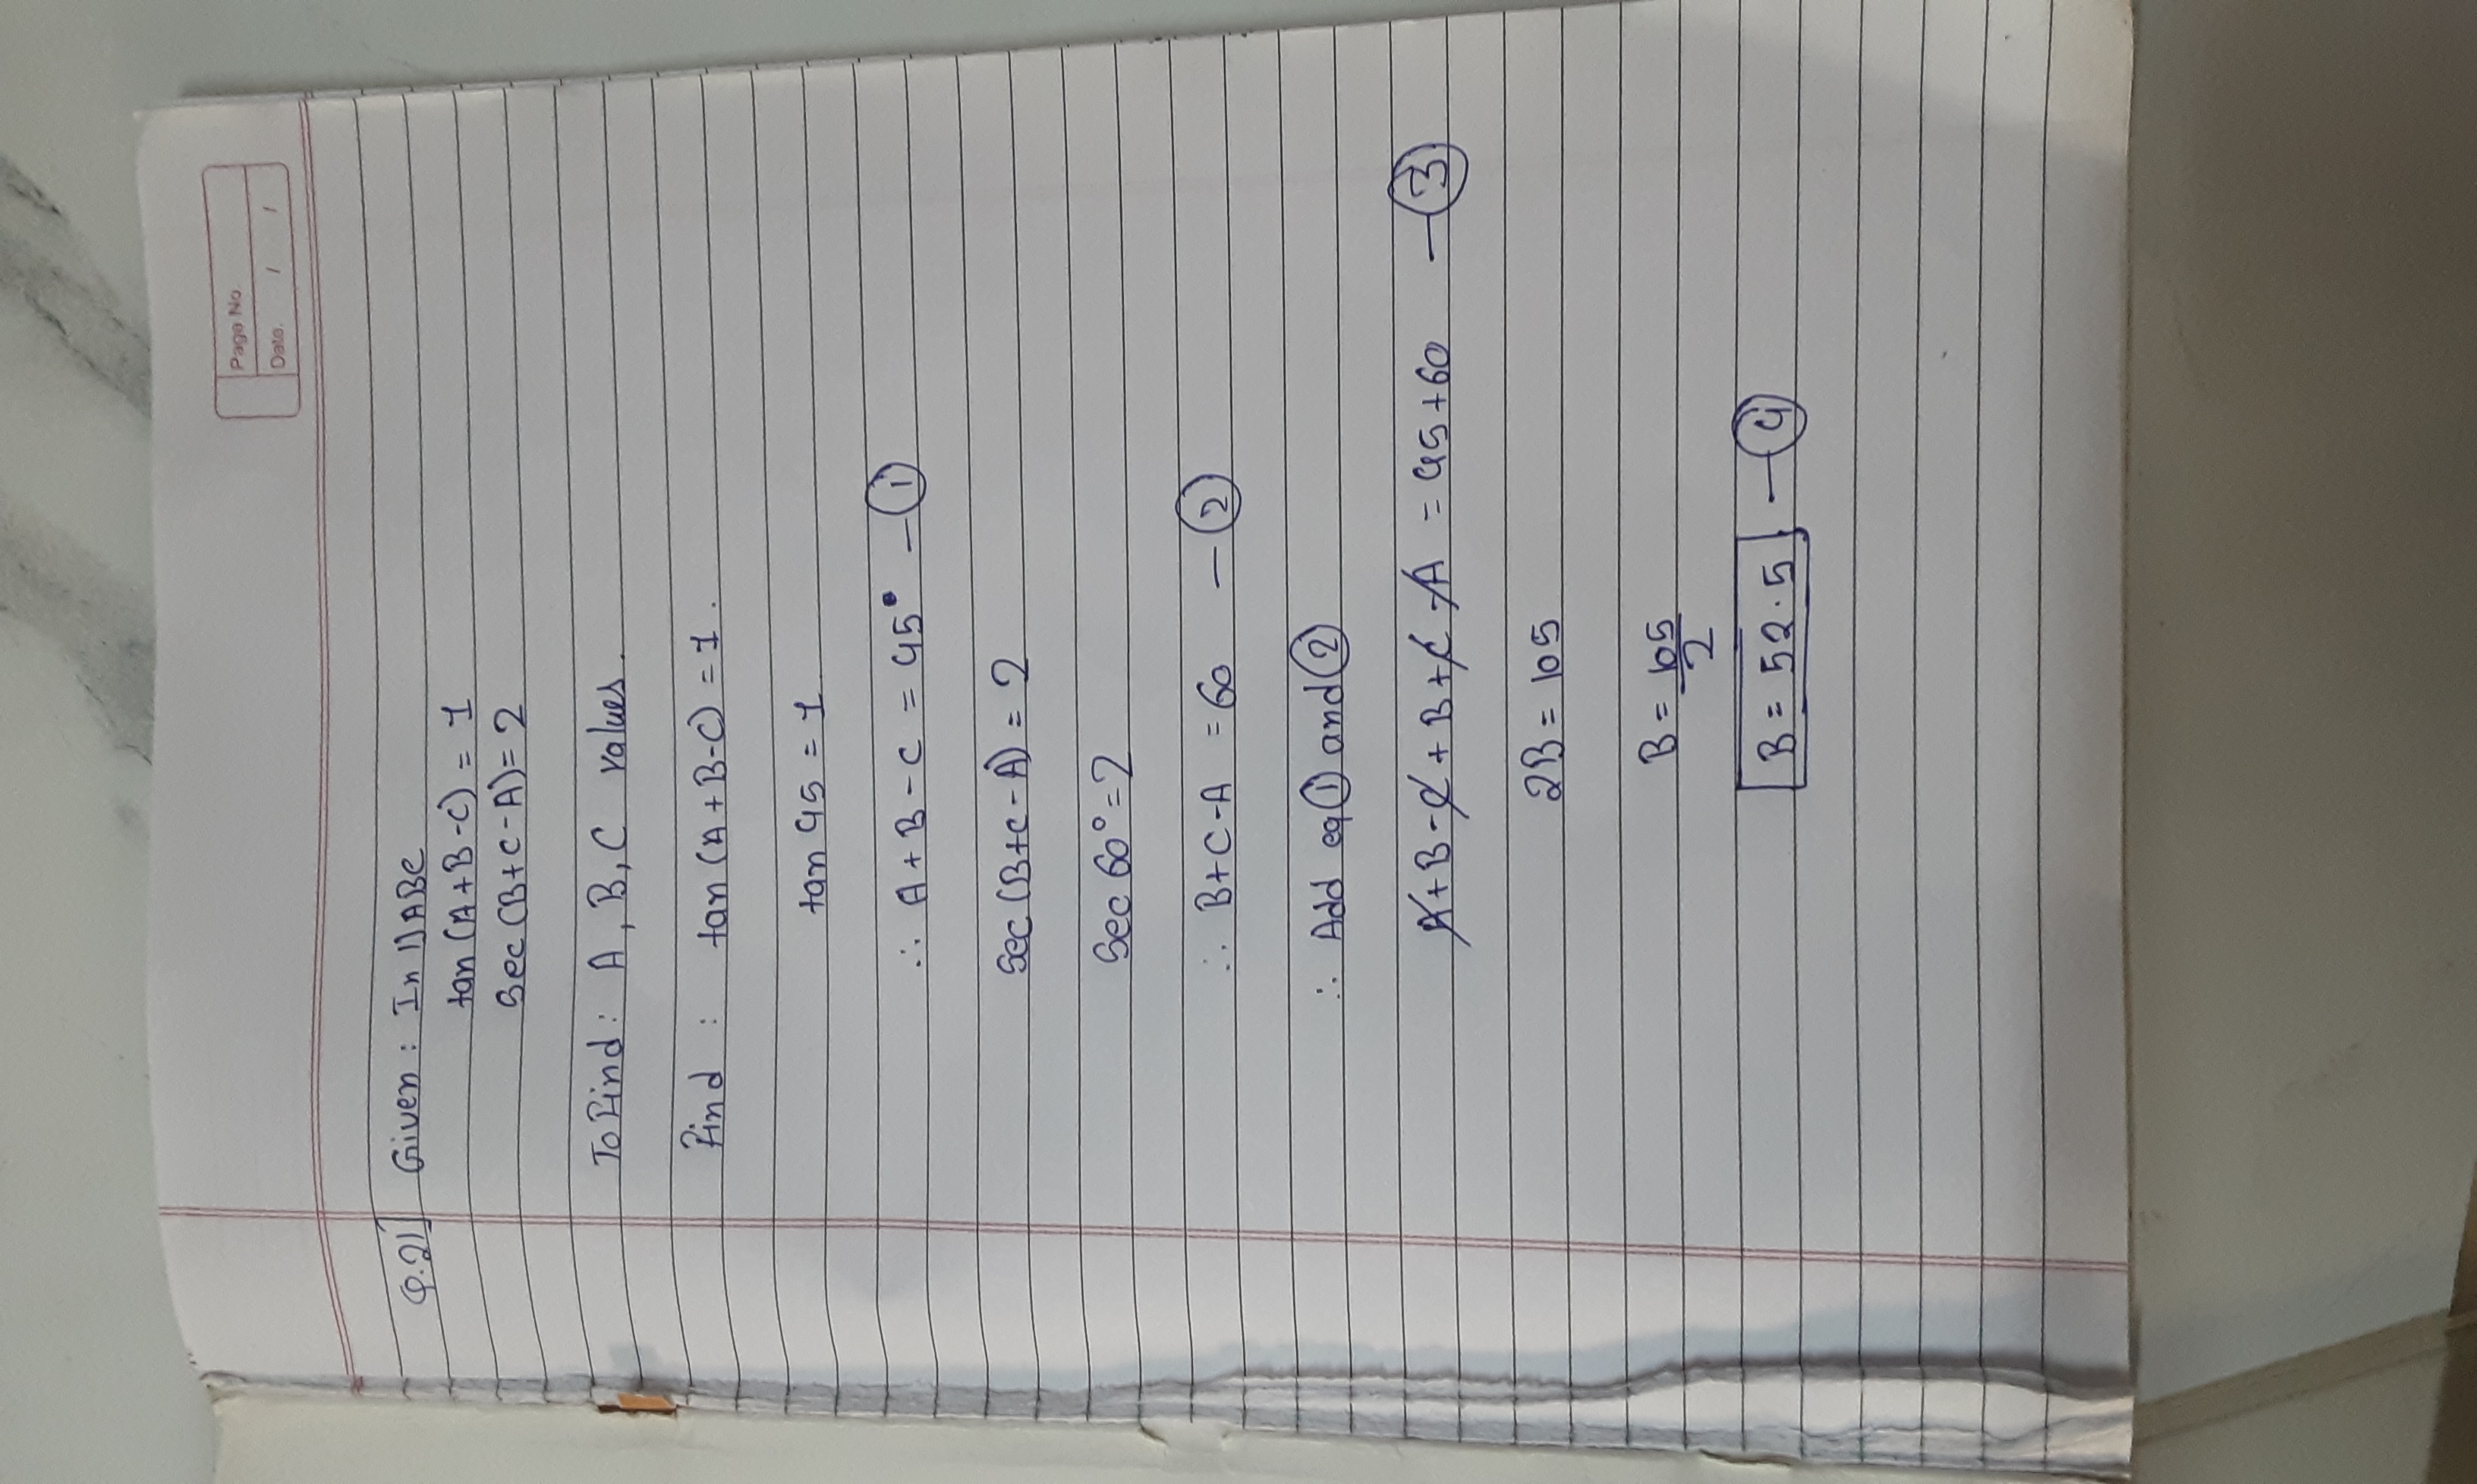 Page No.
Date. / /
Q.21] Given : In ΔABC
tan (A+B-C) = 1
Sec (B+C-A) = 2
To Find : A, B, C values.
Find : tan (A+B-C) = 1.
tan 45 = 1
∴ A+B-C = 45° — ①
Sec (B+C-A) = 2
Sec 60° = 2
∴ B+C-A = 60 — ②
∴ Add eq ① and ②
A+B-C+B+C-A = 45+60 — ③
2B = 105
B = 105/2
B = 52.5 — ④